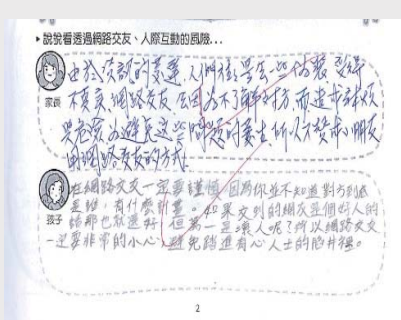 ▸說說看透過網路交友、人際互動的風險...
由於資訊的發達,人們往往學會一些偽裝,變得
不真實,網路交友會因為不了解對方,而造成
家長
與危險,為避免這些問題的發生,所以不贊成小朋友
用網路交友的方式.
在網路交友一定要謹慎,因為你並不知道對方到底
是誰,有什麼計畫。如果交到的網友是個好人的
孩子
話那也就還好,但萬一是壞人呢?所以網路交友
一定要非常的小心,避免踏進有心人士的陷井裡。
2